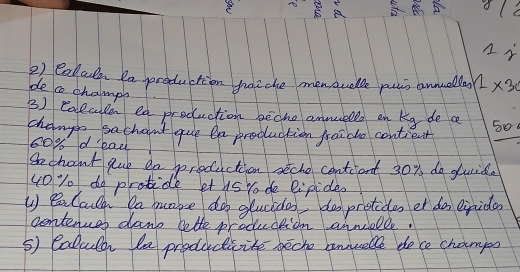 2) Calculer la production fraîche mensuelle puis annuelle
de ce champs.
3) Calculer la production sèche annuelle en Kg de ce
champs sachant que la production fraîche contient
60% d'eau
Sachant que la production sèche contient 30% de glucide
40% de protide et 15% de lipides
4) Calculer la masse des glucides, des protides et des lipides
contenues dans cette production annuelle.
5) Calculer la productivité sèche annuelle de ce champs